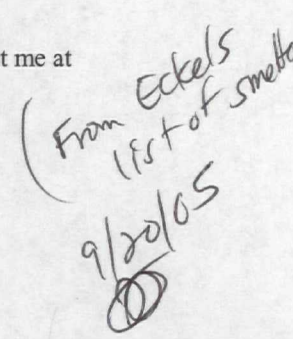 t me at
(From Eckels
list of smelte
9/20/05